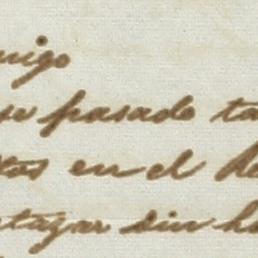 migo
se pasado ta
tos en el Re
tazar sin h